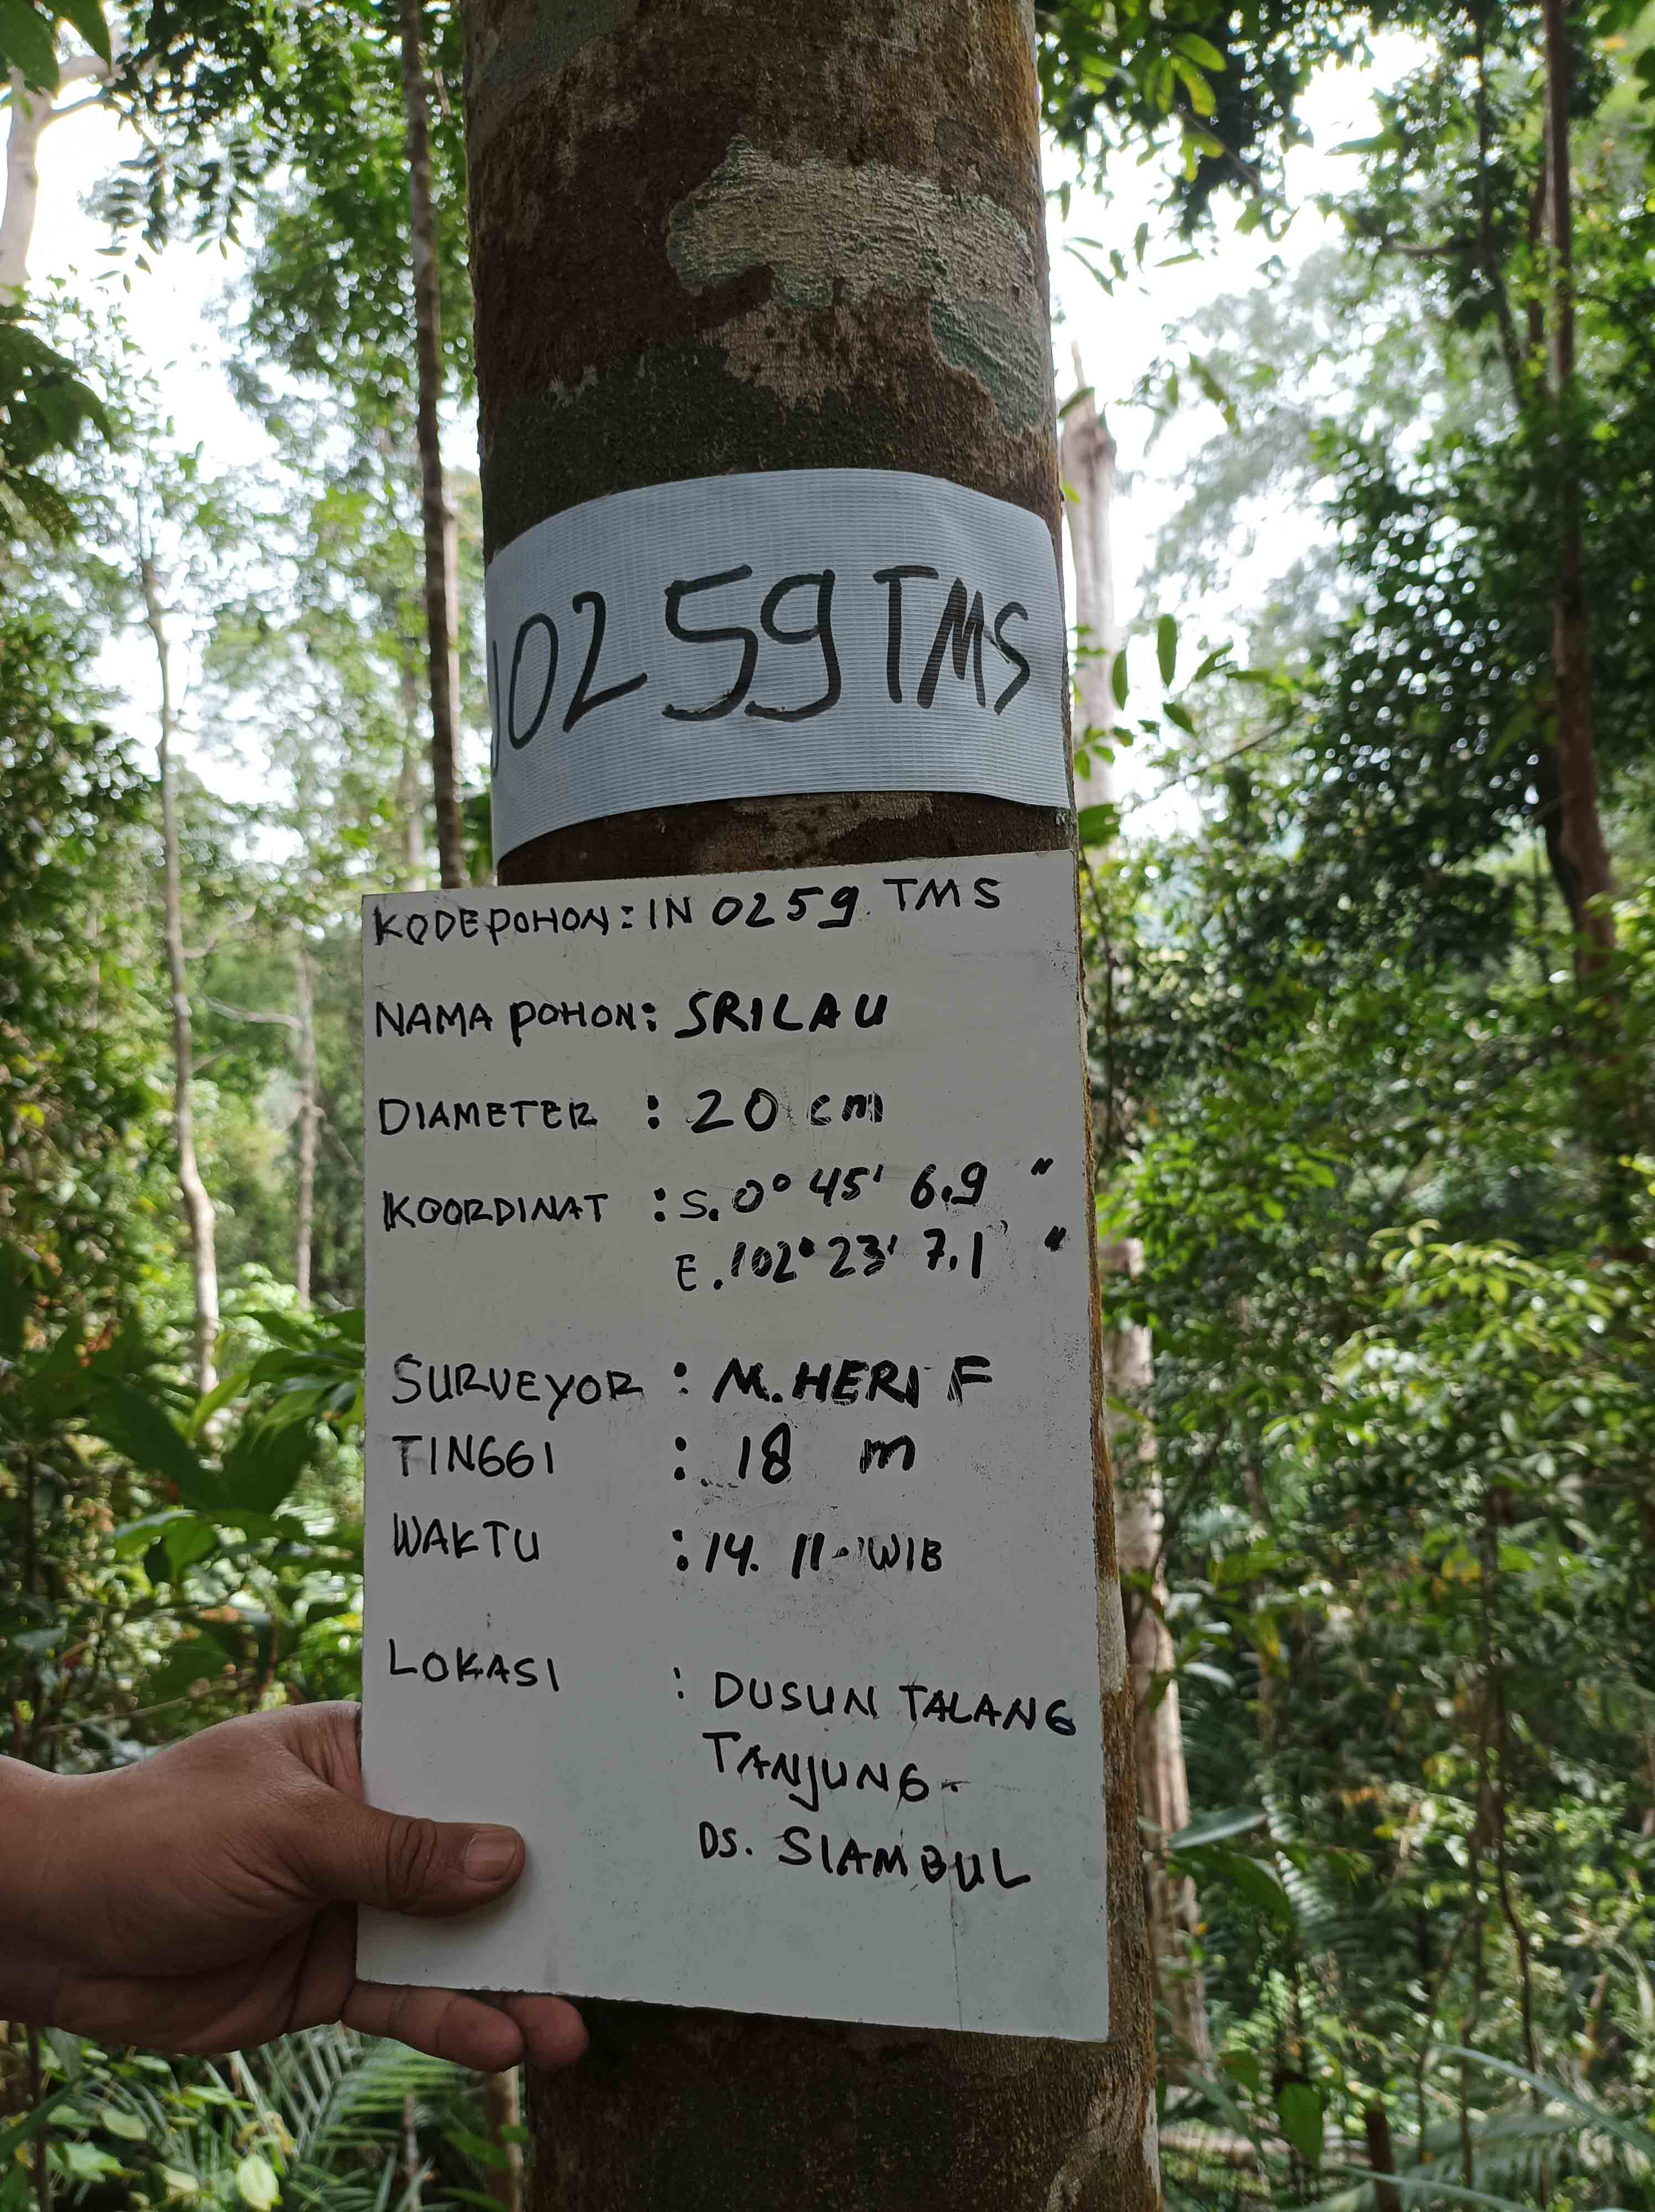 0259 TMS
KODE POHON : IN 0259 TMS
NAMA POHON : SRILAU
DIAMETER : 20 cm
KOORDINAT : S. 0° 45' 6.9 "
E. 102° 23' 7.1 "
SURVEYOR : M. HERI F
TINGGI : 18 m
WAKTU : 14. 11 - WIB
LOKASI : DUSUN TALANG
TANJUNG -
DS. SIAMBUL